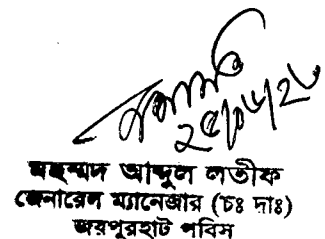 ২৫/০৮/২৬
মহম্মদ আব্দুল লতীফ
জেনারেল ম্যানেজার (চঃ দাঃ)
জয়পুরহাট পবিস